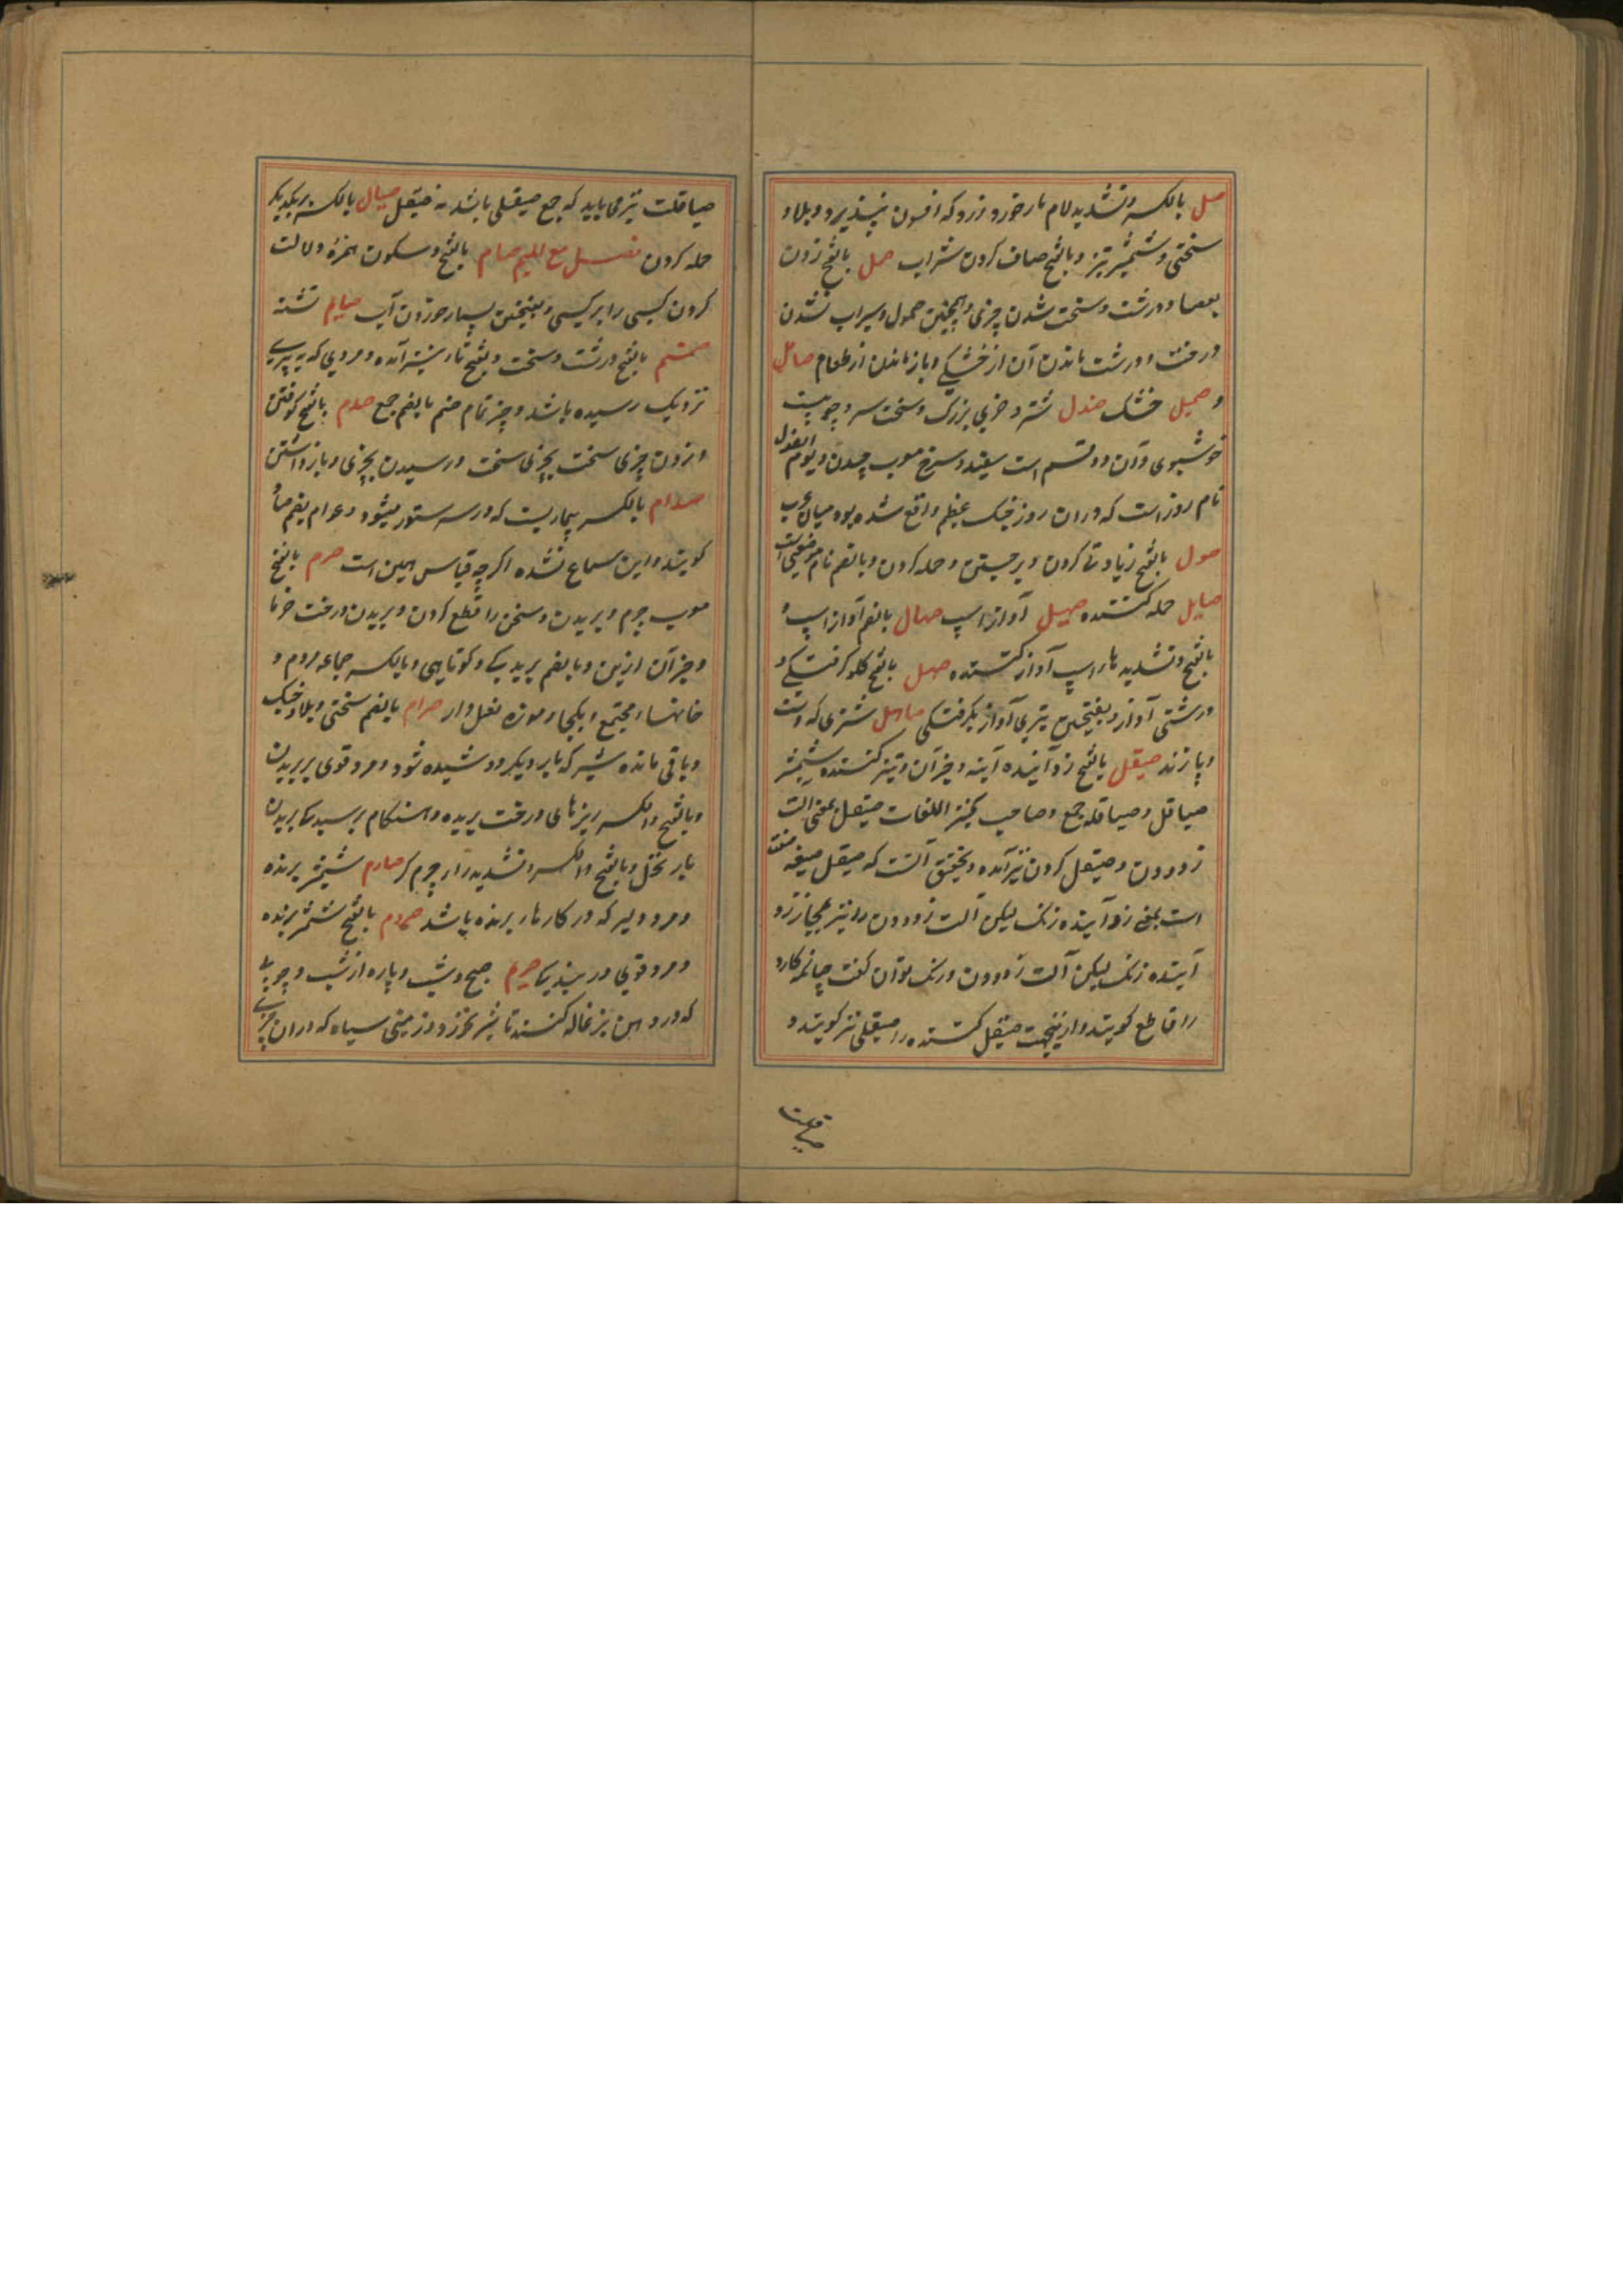 صل بالکسر و تشدید لام مار خورد و زرد که افسون نپذیرد و بلا و
سختی و شمشیر تیز و بالفتح صاف کردن شراب صمل بالفتح زدن
بعصا و درشت و سخت شدن چیزی و همچنین صمول و سیراب نشدن
درخت و درشت ماندن آن از خشکی و باز ماندن از طعام صامل
و صمیل خشک صندل شتر و خری بزرک و سخت سر و چوبیست
خوشبوی و آن دو قسم است سفید و سرخ معرب چندن و یوم الصندل
نام روز است که دران روز جنک عظیم واقع شده بود میان عرب
صول بالفتح زیادتی کردن و برجستن و حمله کردن و بالضم نام موضعی است
صایل حمله کننده صهیل آواز اسپ صهال بالضم آواز اسپ و
بالفتح و تشدید ها اسپ آواز کننده صهل بالفتح کلو کرفتکی و
درشتی آواز و بفتحتین تیزی آواز بکرفتکی صاهل شتری که دست
و پا زند صیقل بالفتح زدآینده آینه و جز آن و تیز کننده شمشیر
صیاقل و صیاقله جمع و صاحب کنز اللغات صیقل بمعنی الت
زدودن و صیقل کردن نیز آمده و تحقیق آنست که صیقل صیغه صفت
است بمعنی زدآینده زنک لیکن آلت زدودن را نیز مجاز زد
آینده زنک لیکن آلت زدودن و رنک توان کفت چنانچه کارد
را قاطع کویند و ازینجهت صیقل کننده را صیقلی نیز کویند و
صیاقلت نیز می باید که جمع صیقلی باشد نه صیقل صیال بالکسر بر یکدیکر
حمله کردن فصل مع المیم صام بالفتح و سکون همزه دلالت
کردن کسی را بر کسی و بفتحتین بسیار خوردن آب صیام تشنه
صتم بالفتح درشت و سخت و بفتح تا نیز آمده و مردی که به پیری
نزدیک رسیده باشد و چیز تمام صتم بالضم جمع صدم بالفتح کوفتن
و زدن چیزی سخت بچیزی سخت و رسیدن بچیزی و باز داشتن
صدام بالکسر بیماریست که در سر ستور میشود و عوام بضم صاد
کویند و این سماع نشده اکرچه قیاس همین است صرم بالفتح
معرب چرم و بریدن و سخن را قطع کردن و بریدن درخت خرما
و جز آن از بن و بالضم بریدیکی و کوتاهی و بالکسر جماعه مردم و
خانهاء مجتمع و یکجا و موزه نعل دار صرام بالضم سختی و بلا و جنک
و باقی مانده شیر که بار دیکر دوشیده شود و مرد قوی بر بریدن
و بالفتح و الکسر ریزهای درخت بریده و هنکام برسیدن بریدن
بار نخل و بالفتح و الکسر و تشدید را چرم کر صارم شمشیر برنده
و مرد دلیر که در کارها برنده باشد صروم بالفتح شمشیر برنده
و مرد قوی در بریدن صریم صبح و شب و پاره از شب و چوبی
که در دهن بزغاله کنند تا شیر نخورد و زمینی سیاه که دران چیزی